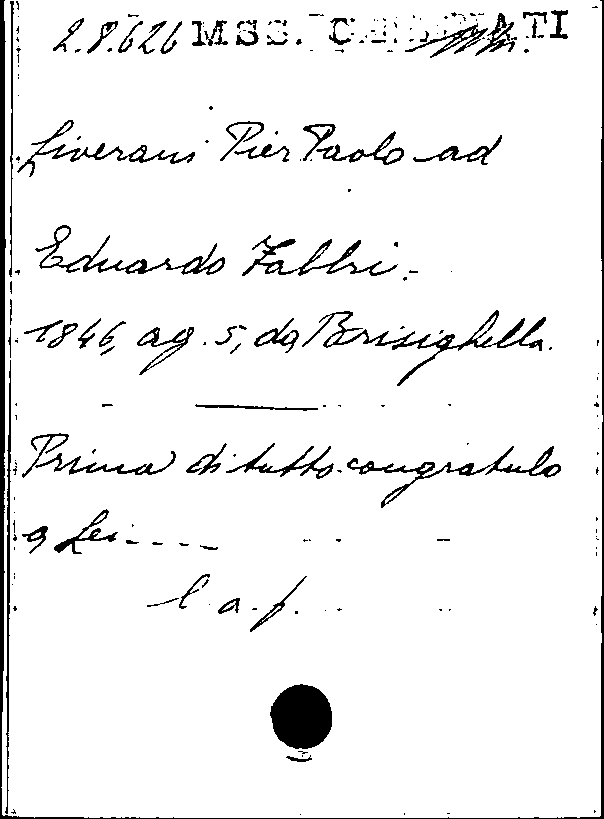 2.8.626 MSS.
Liverani Pier Paolo ad
Eduardo Fabbri.
1846, ag. 5, da Brisighella.
Prima di tutto congratulo
a Lei----
l. a. f.